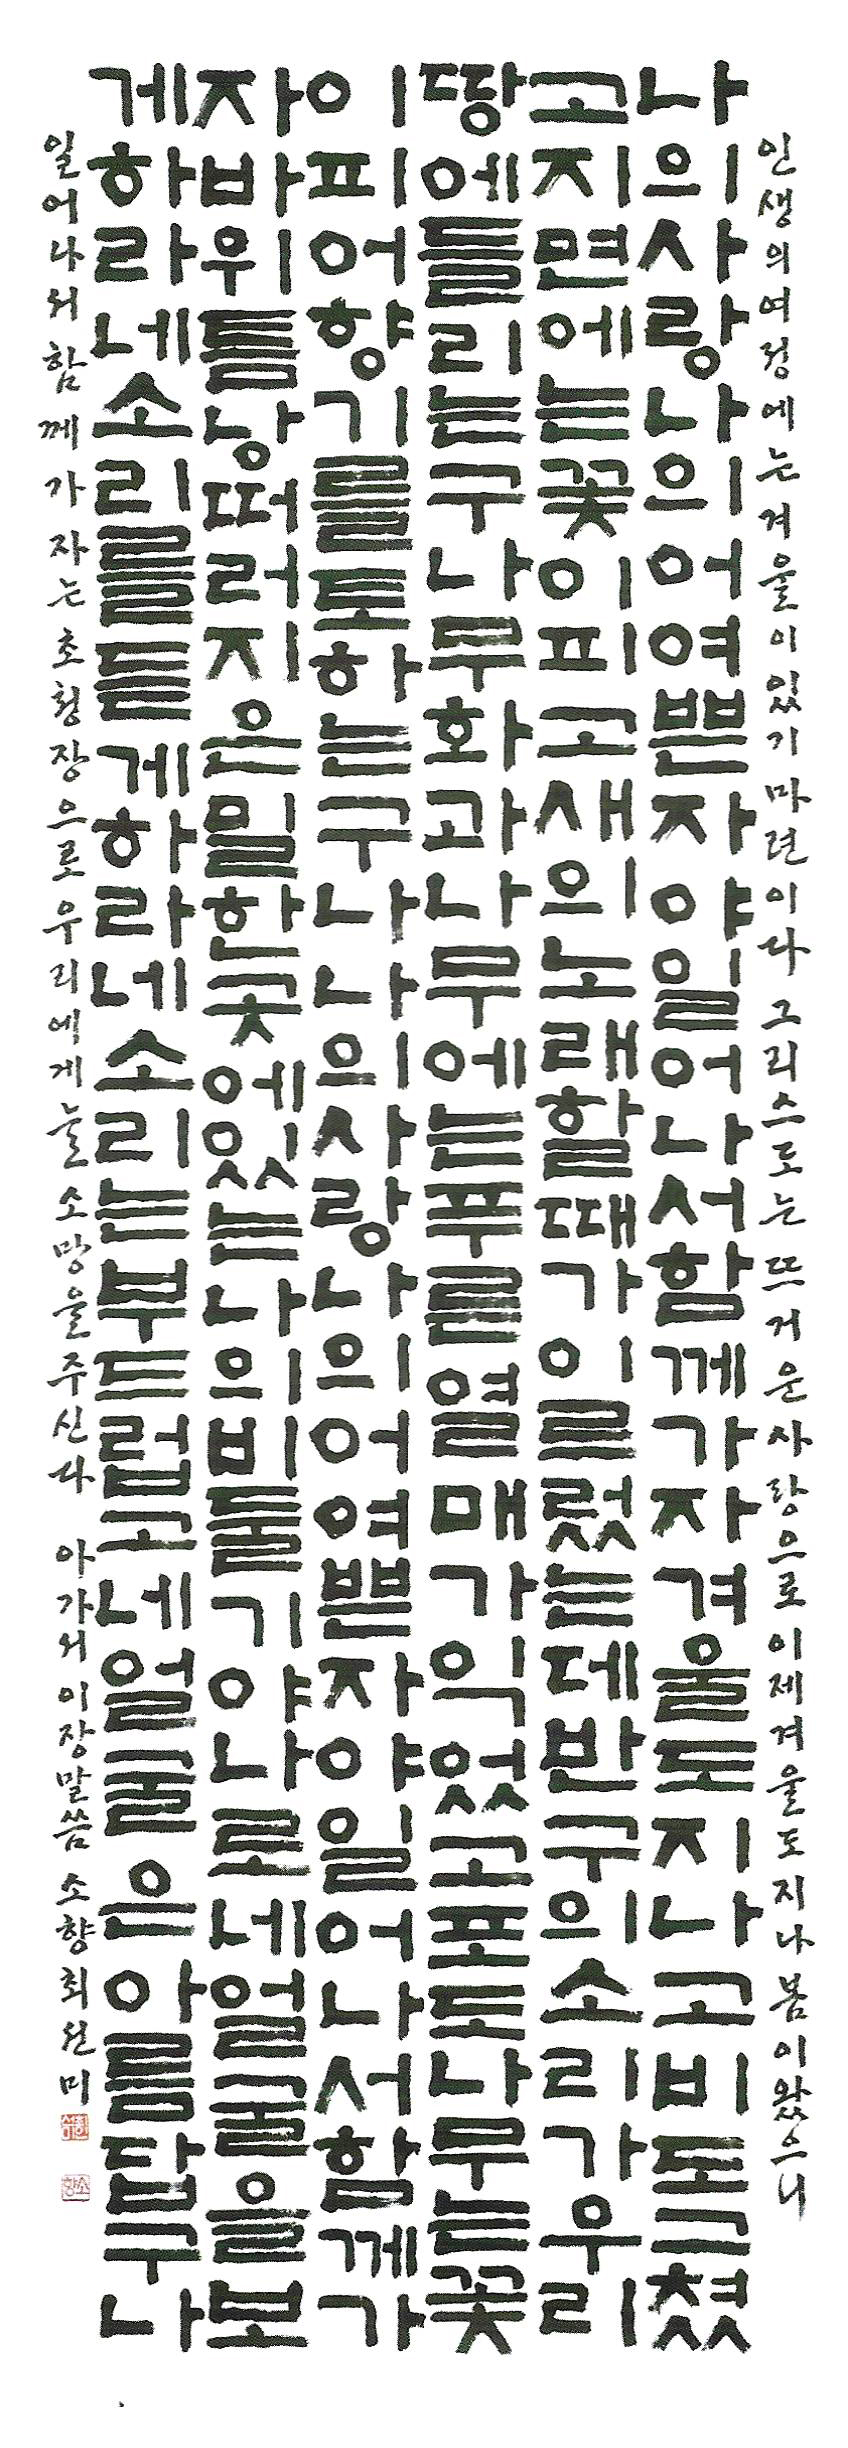 인생의여정에는겨울이있기마련이다그리스도는뜨거운사랑으로이제겨울도지나봄이왔으니
나의사랑나의어여쁜자야일어나서함께가자겨울도지나고비도그쳤
고지면에는꽃이피고새의노래할때가이르렀는데반구의소리가우리
땅에들리는구나무화과나무에는푸른열매가익었고포도나무는꽃
이피어향기를토하는구나나의사랑나의어여쁜자야일어나서함께가
자바위틈낭떠러지은밀한곳에있는나의비둘기야나로네얼굴을보
게하라네소리를듣게하라네소리는부드럽고네얼굴은아름답구나
일어나서함께가자는초청장으로우리에게늘소망을주신다 아가서이장말씀 소향최선미